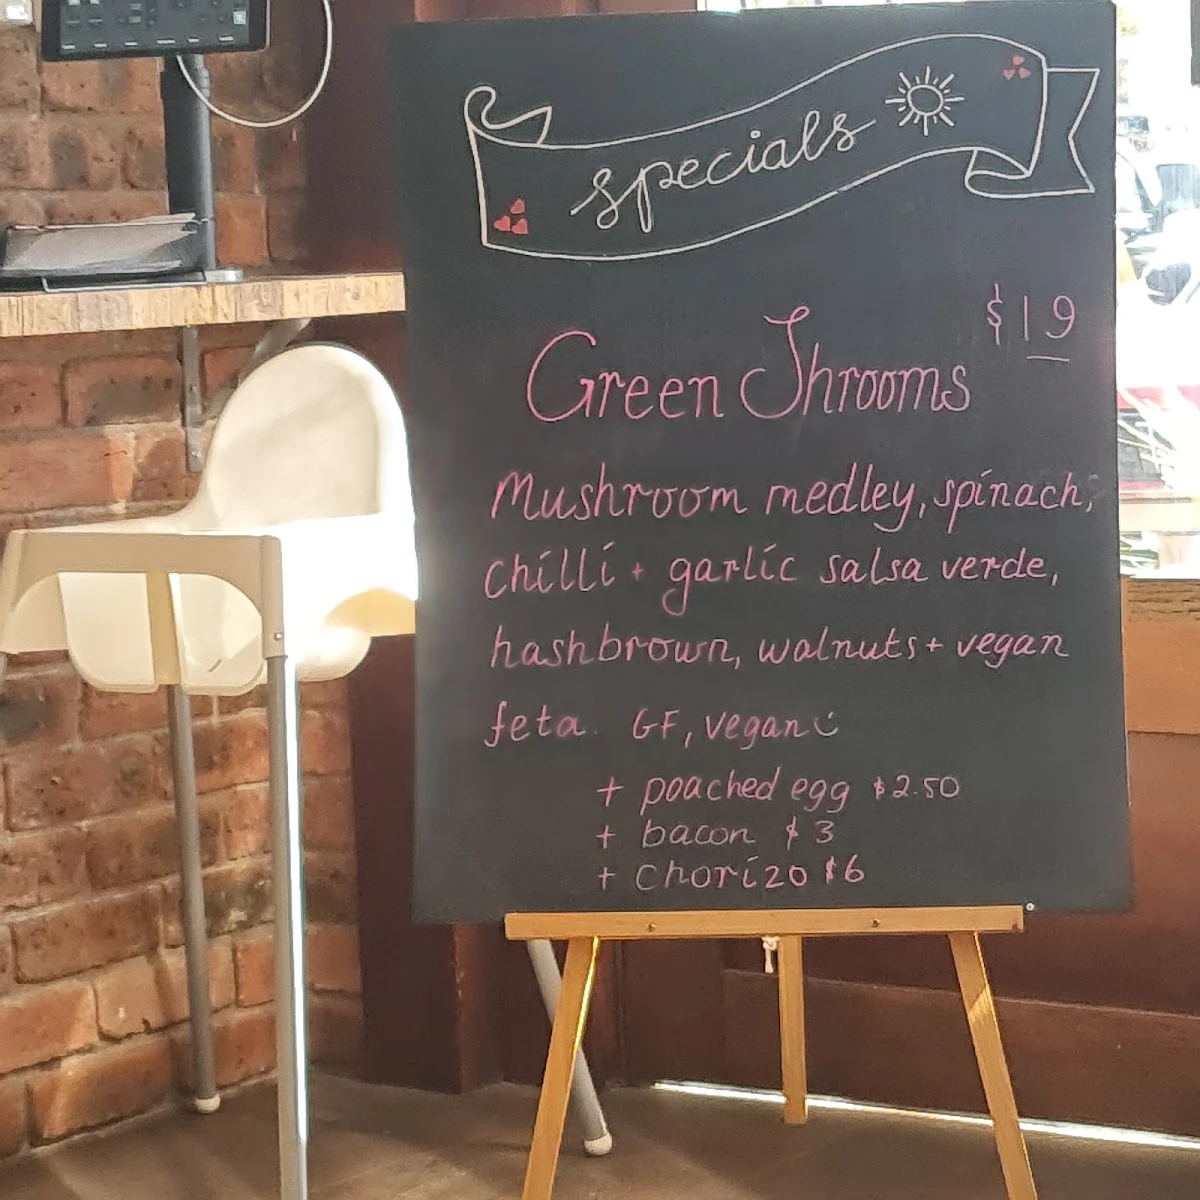 specials
$19
Green Shrooms
Mushroom medley, spinach,
chilli + garlic salsa verde,
hashbrown, walnuts + vegan
feta. GF, vegan
+ poached egg $2.50
+ bacon $3
+ chorizo $6